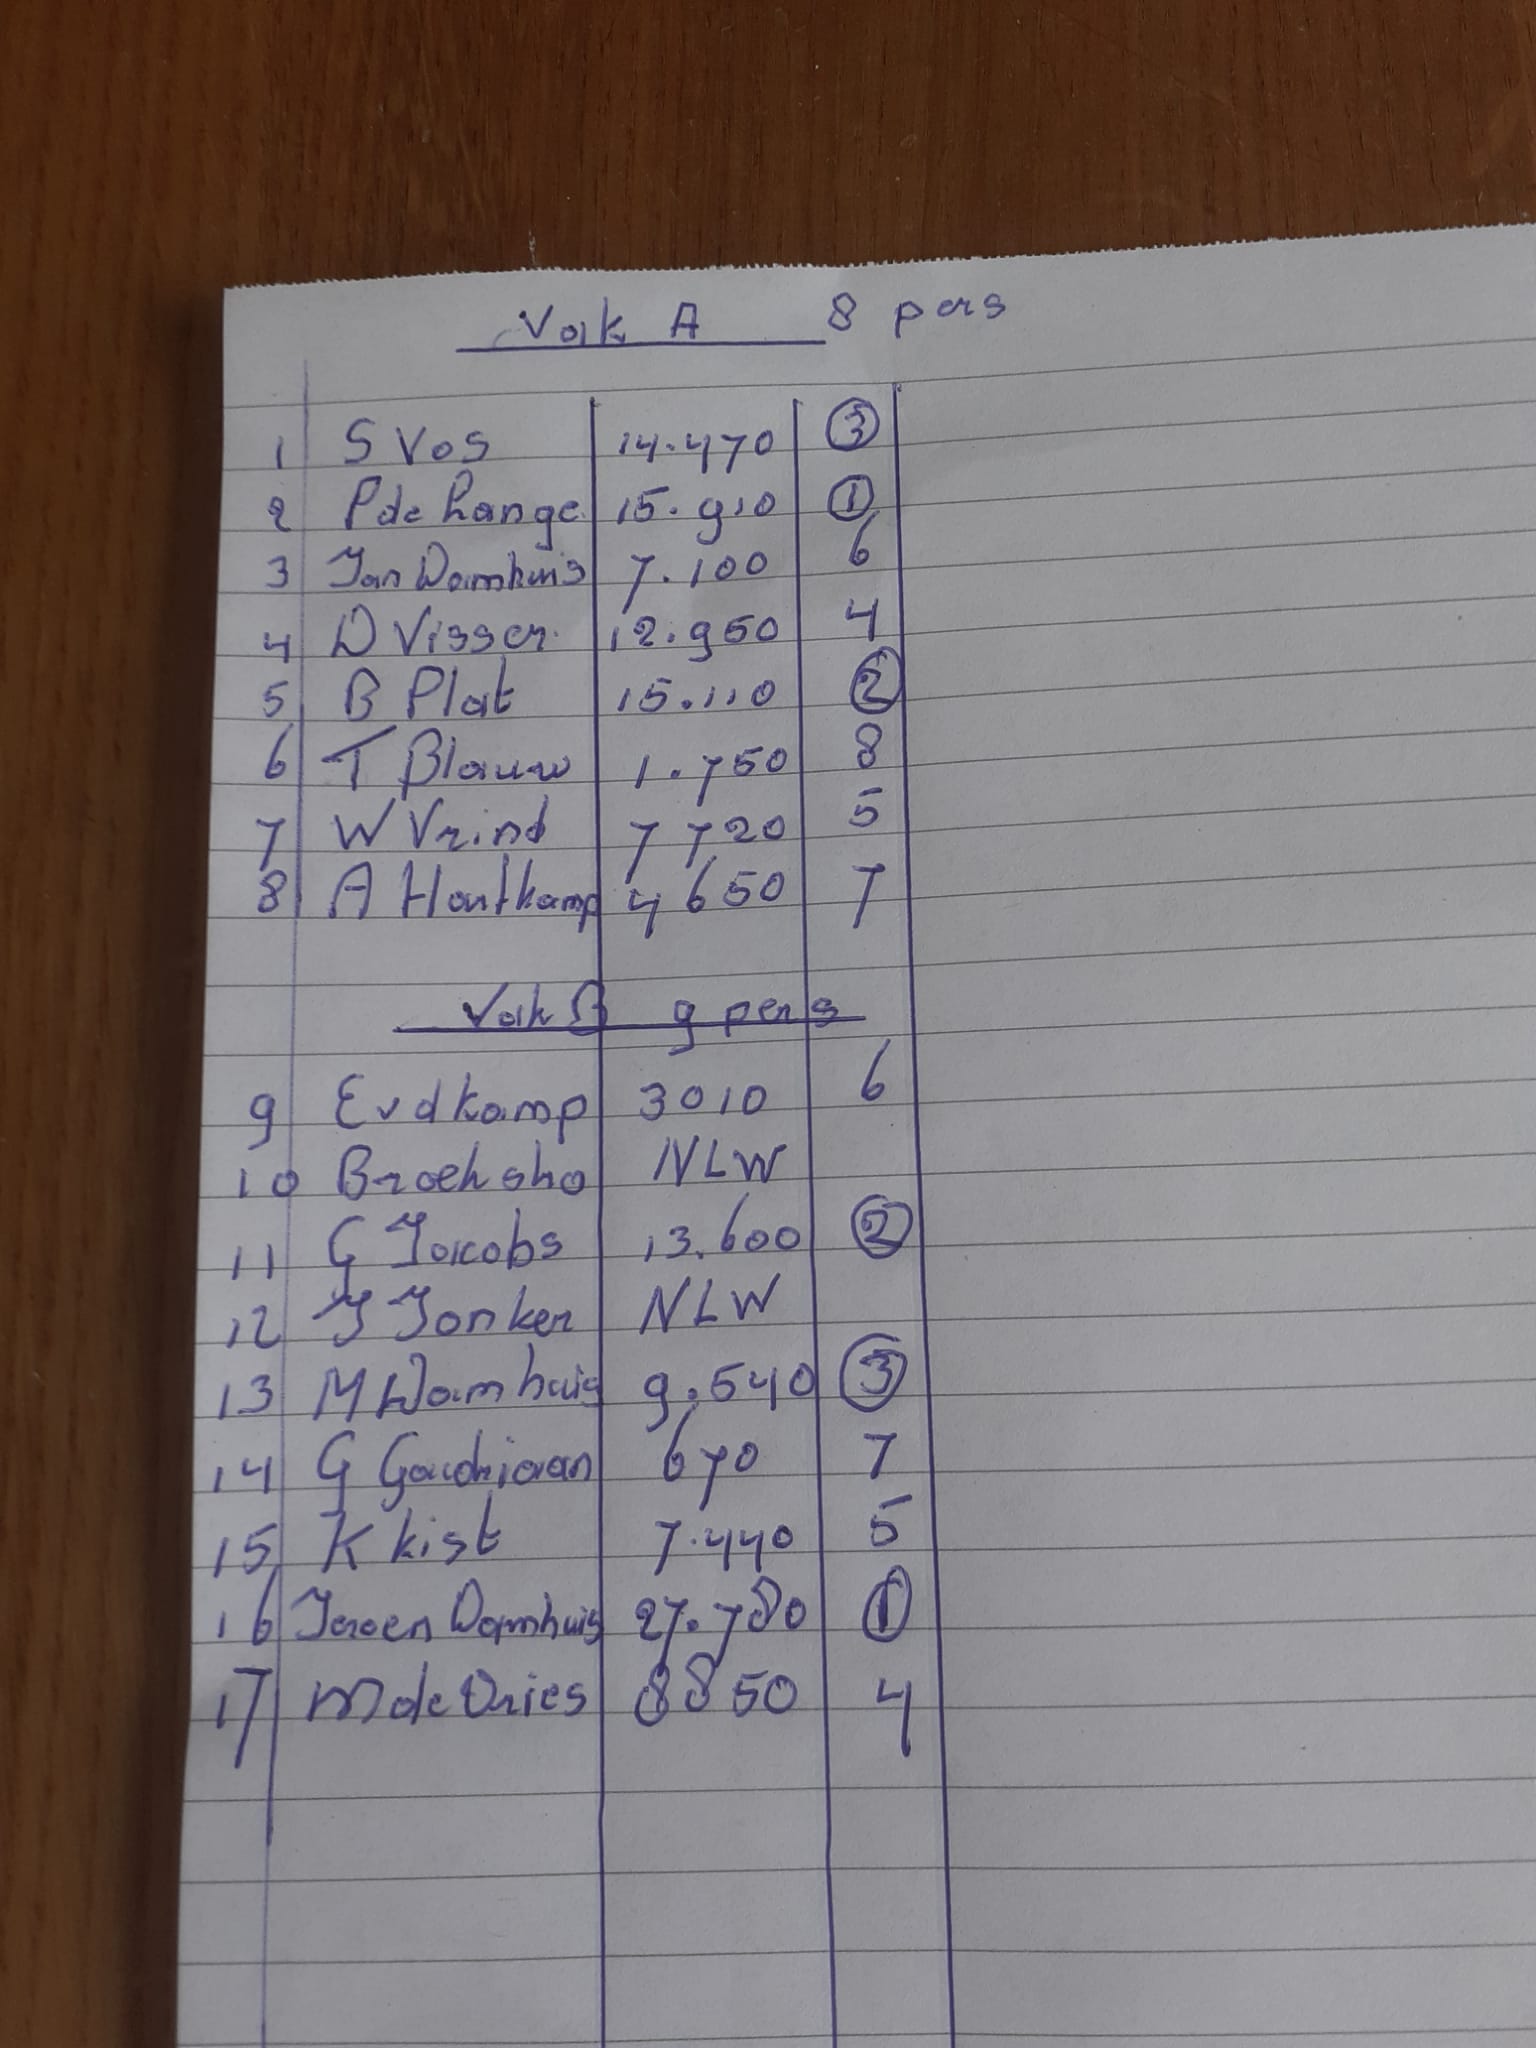 Vak A 8 pers
1 S Vos 14.470 3
2 P de Lange 15.910 1
3 Jan Damhuis 7.100 6
4 D Visser 12.950 4
5 B Plat 15.110 2
6 T Blauw 1.750 8
7 W Vrind 7720 5
8 A Houtkamp 4650 7
Vak B 9 pers
9 E vd kamp 3010 6
10 NLW
11 G Jacobs 13.600 2
12 J Jonker NLW
13 M Damhuis 9.540 3
14 G 670 7
15 K kist 7.440 5
16 Jeroen Damhuis 27.780 1
17 M de Vries 8850 4